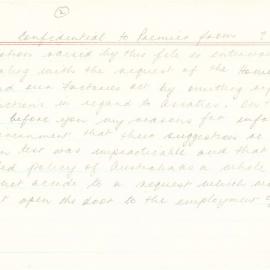 ②
Confidential to Premier from
ation raised by this file is
aling with the request of the Home
end our Factories Act by omitting
nctions in regard to Asiatics.
before you my reasons for
ernment that their suggestion
n test was impracticable and that
ed policy of Australia as a whole
not accede to a request which
t open the door to the employment